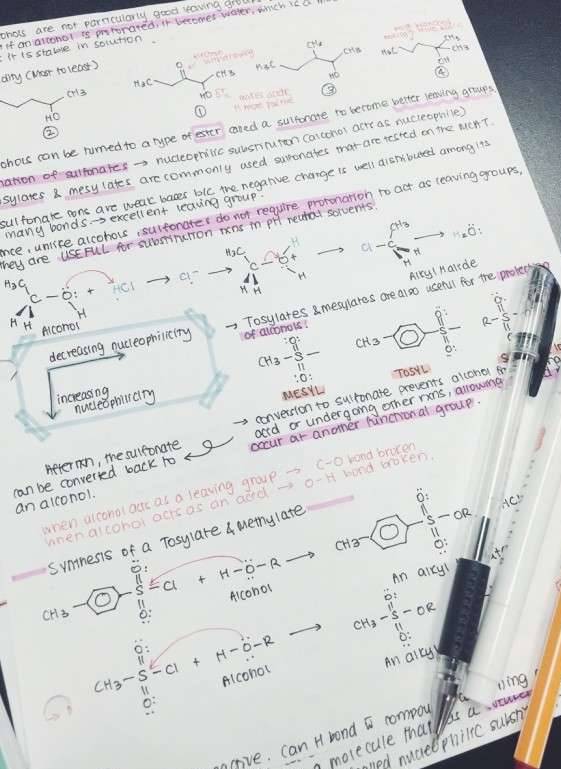 ohols are not particularly good leaving grou
if an alcohol is protonated, it becomes water, which is a m
it is stable in solution.
dity (Most to least)
electron withdrawing
CH3
HO
②
H3C
O
CH3
HO
①
makes acidic
H more positive
H3C
CH3
CH3
HO
③
H3C
CH3
CH3
OH
④
ohols can be turned to a type of ester called a sulfonate to become better leaving groups
mation of sulfonates → nucleophilic substitution (alcohol acts as nucleophile)
sylates & mesylates are commonly used sulfonates that are tested on the MCAT.
sulfonate ions are weak bases b/c the negative charge is well distributed among its
many bonds → excellent leaving group.
nce, unlike alcohols, sulfonates do not require protonation to act as leaving groups,
they are USEFUL for substitution rxns in pH neutral solvents.
H3C
C — O: + HCl → Cl:⁻ →
H H H
Alcohol
H3C H
C — O+
H H H
→ Cl — C
CH3
H
H
→ H2O:
Alkyl Halide
decreasing nucleophilicity
increasing
nucleophilicity
→ Tosylates & mesylates are also useful for the protection
of alcohols:
:O:
CH3 — S —
:O:
MESYL
O:
CH3 — S —
O:
TOSYL
O:
R — S —
→ conversion to sulfonate prevents alcohol f
acid or undergoing other rxns, allowing
occur at another functional group.
After rxn, the sulfonate
can be converted back to
an alcohol.
when alcohol acts as a leaving group → C-O bond broken
when alcohol acts as an acid → O-H bond broken.
Synthesis of a Tosylate & Methylate
O:
CH3 — S — Cl + H — O — R →
O:
Alcohol
O:
CH3 — S — OR
O:
An alkyl
O:
CH3 — S — Cl + H — O — R →
O:
Alcohol
O:
CH3 — S — OR
O:
An alky
HCl
active. Can H bond
a molecule tha as a
called nucleophilic subst